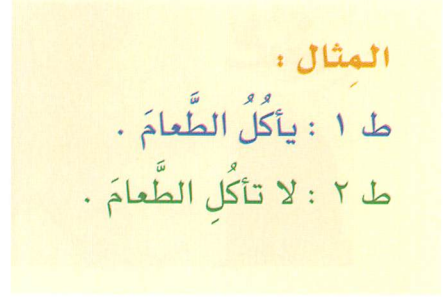 المِثال :
ط ١ : يأكُلُ الطَّعامَ .
ط ٢ : لا تأكُلِ الطَّعامَ .